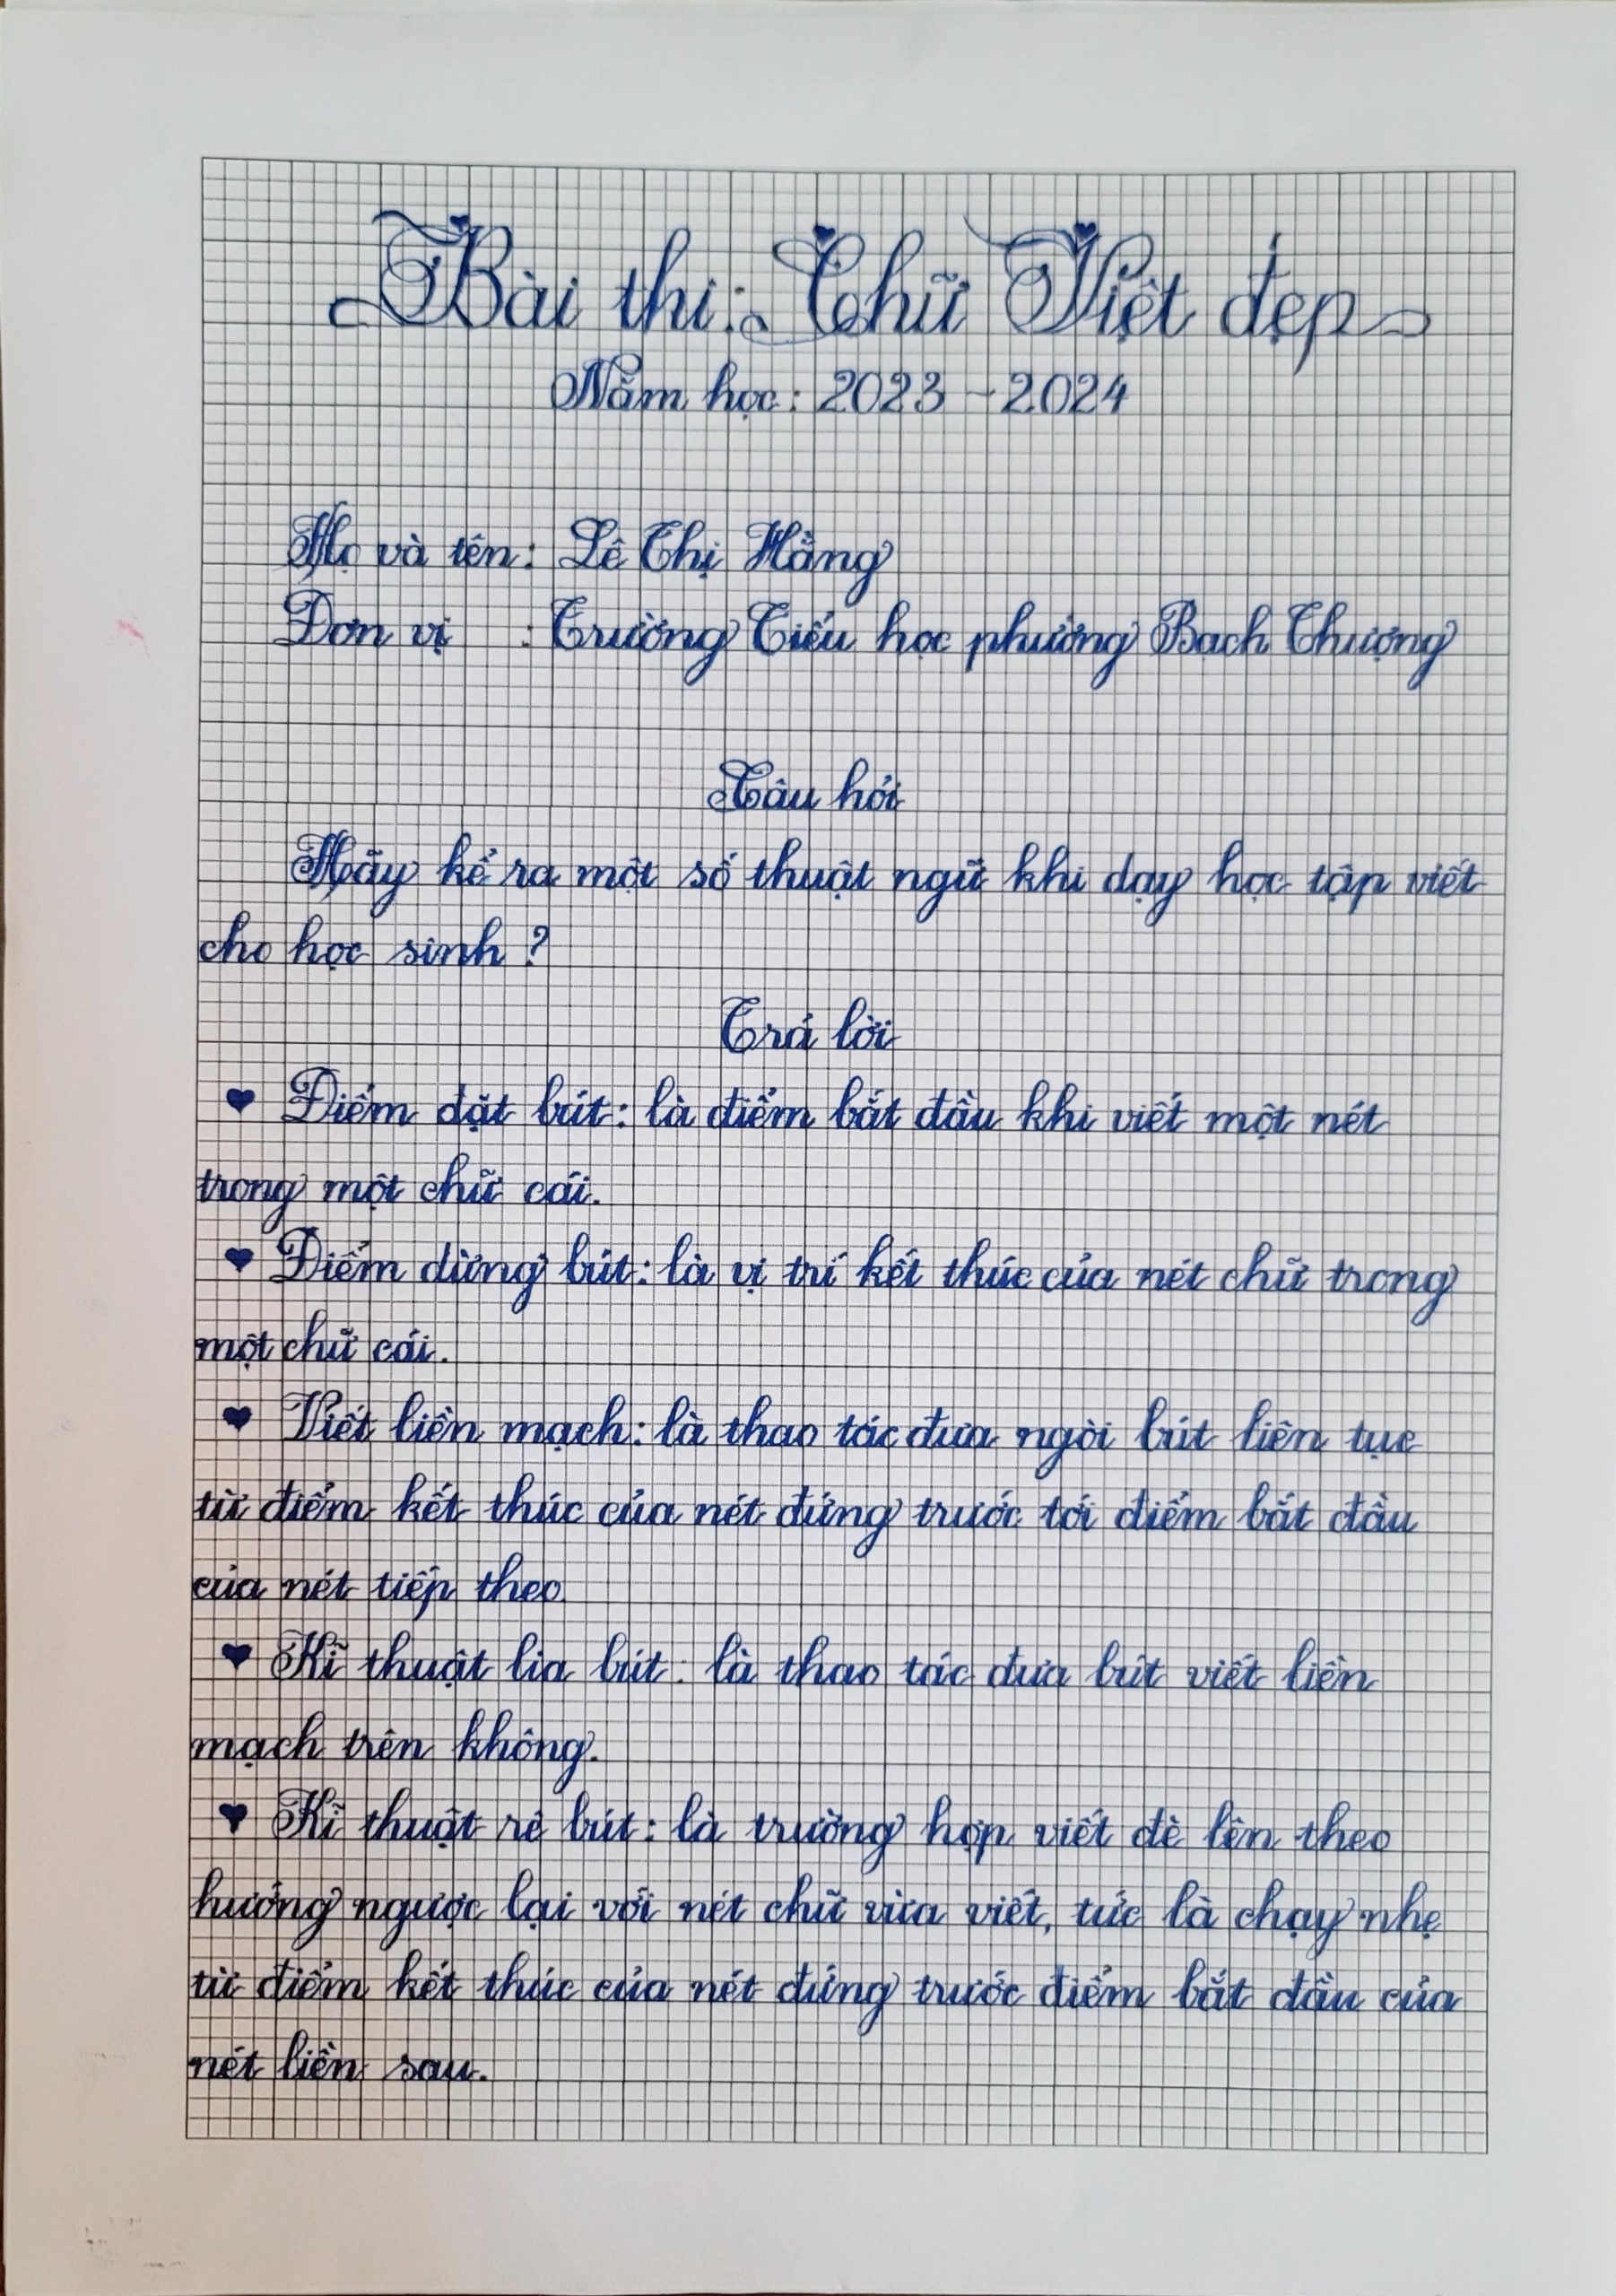 Bài thi: Chữ Việt đẹp
Năm học: 2023 - 2024
Họ và tên: Lê Thị Hằng
Đơn vị : Trường Tiểu học phường Bạch Thượng
Câu hỏi
Hãy kể ra một số thuật ngữ khi dạy học tập viết
cho học sinh ?
Trả lời
♥ Điểm đặt bút: là điểm bắt đầu khi viết một nét
trong một chữ cái.
♥ Điểm dừng bút: là vị trí kết thúc của nét chữ trong
một chữ cái.
♥ Viết liền mạch: là thao tác đưa ngòi bút liên tục
từ điểm kết thúc của nét đứng trước tới điểm bắt đầu
của nét tiếp theo.
♥ Kĩ thuật lia bút: là thao tác đưa bút viết liền
mạch trên không.
♥ Kĩ thuật rê bút: là trường hợp viết đè lên theo
hướng ngược lại với nét chữ vừa viết, tức là chạy nhẹ
từ điểm kết thúc của nét đứng trước điểm bắt đầu của
nét liền sau.